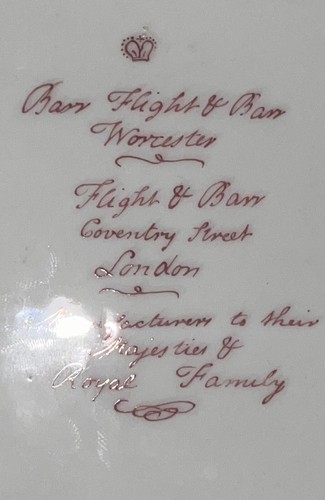 Barr Flight & Barr
Worcester
Flight & Barr
Coventry Street
London
Manufacturers to their
Majesties &
Royal Family